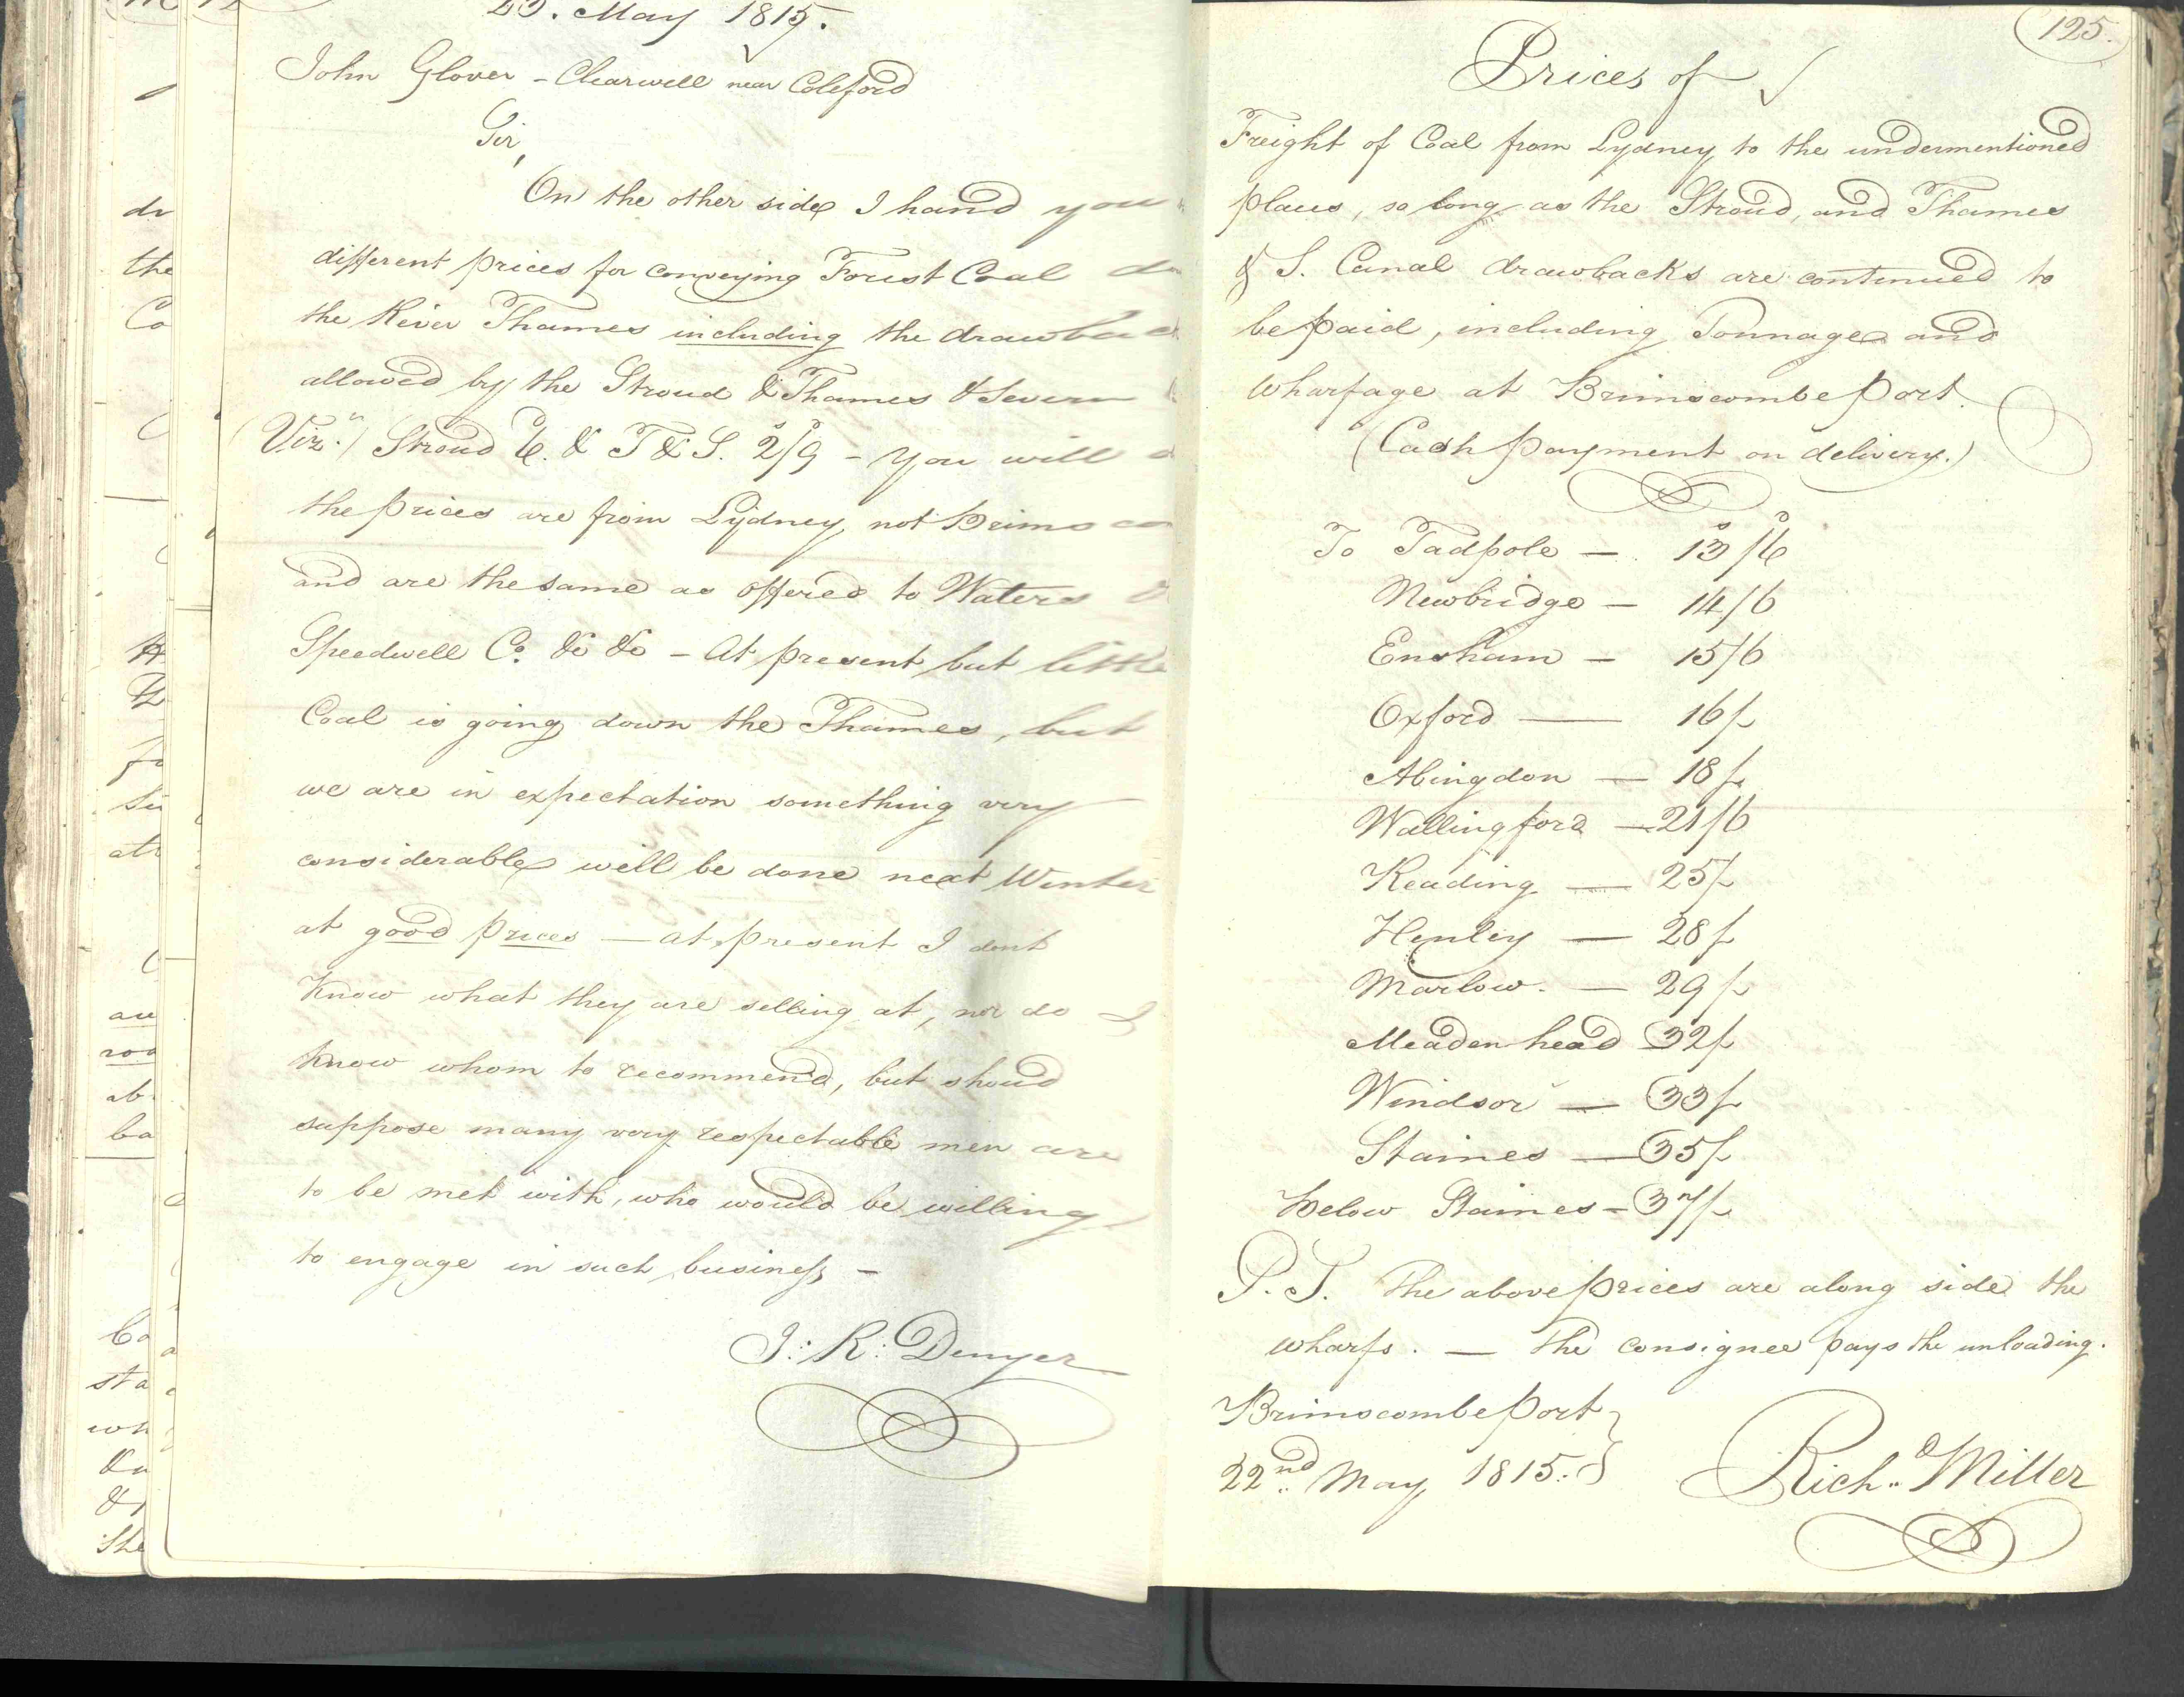 23. May 1815.
John Glover - Clearwell near Coleford
Sir,
On the other side I hand you
different prices for conveying Forest Coal
the River Thames including the drawbac
allowed by the Stroud & Thames & Severn
(Viz.) Stroud /6. & T & S. 2/9 - You will
the prices are from Lydney, not Brimsco
and are the same as offered to Waters
Speedwell Co. &c &c - At present but little
Coal is going down the Thames, but
we are in expectation something very
considerable will be done next Winter
at good prices - at present I dont
Know what they are selling at, nor do I
know whom to recommend, but shoud
suppose many very respectable men are
to be met with, who would be willing
to engage in such business -
J: R: Denyer
125.
Prices of
Freight of Coal from Lydney to the undermentioned
places, so long as the Stroud, and Thames
& S. Canal drawbacks are continued to
be paid, including Tonnage and
Wharfage at Brimscombe Port.
(Cash payment on delivery.)
To Tadpole - 13/6
Newbridge - 14/6
Ensham - 15/6
Oxford - 16/-
Abingdon - 18/-
Wallingford - 21/6
Reading - 25/-
Henley - 28/-
Marlow. - 29/-
Meadenhead 32/-
Windsor - 33/-
Staines - 35/-
below Staines - 37/-
P.S. The above prices are along side the
wharfs. - The consignee pays the unloading.
Brimscombe Port
22nd May 1815.
Richd. Miller